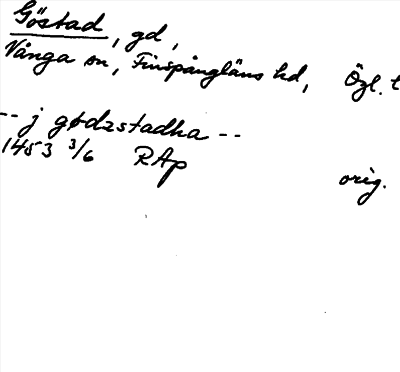 Göstad, gd,
Vånga sn, Finspångläns hd, Ögl. l
-- j gødzstadha --
1453 3/6 RAp orig.